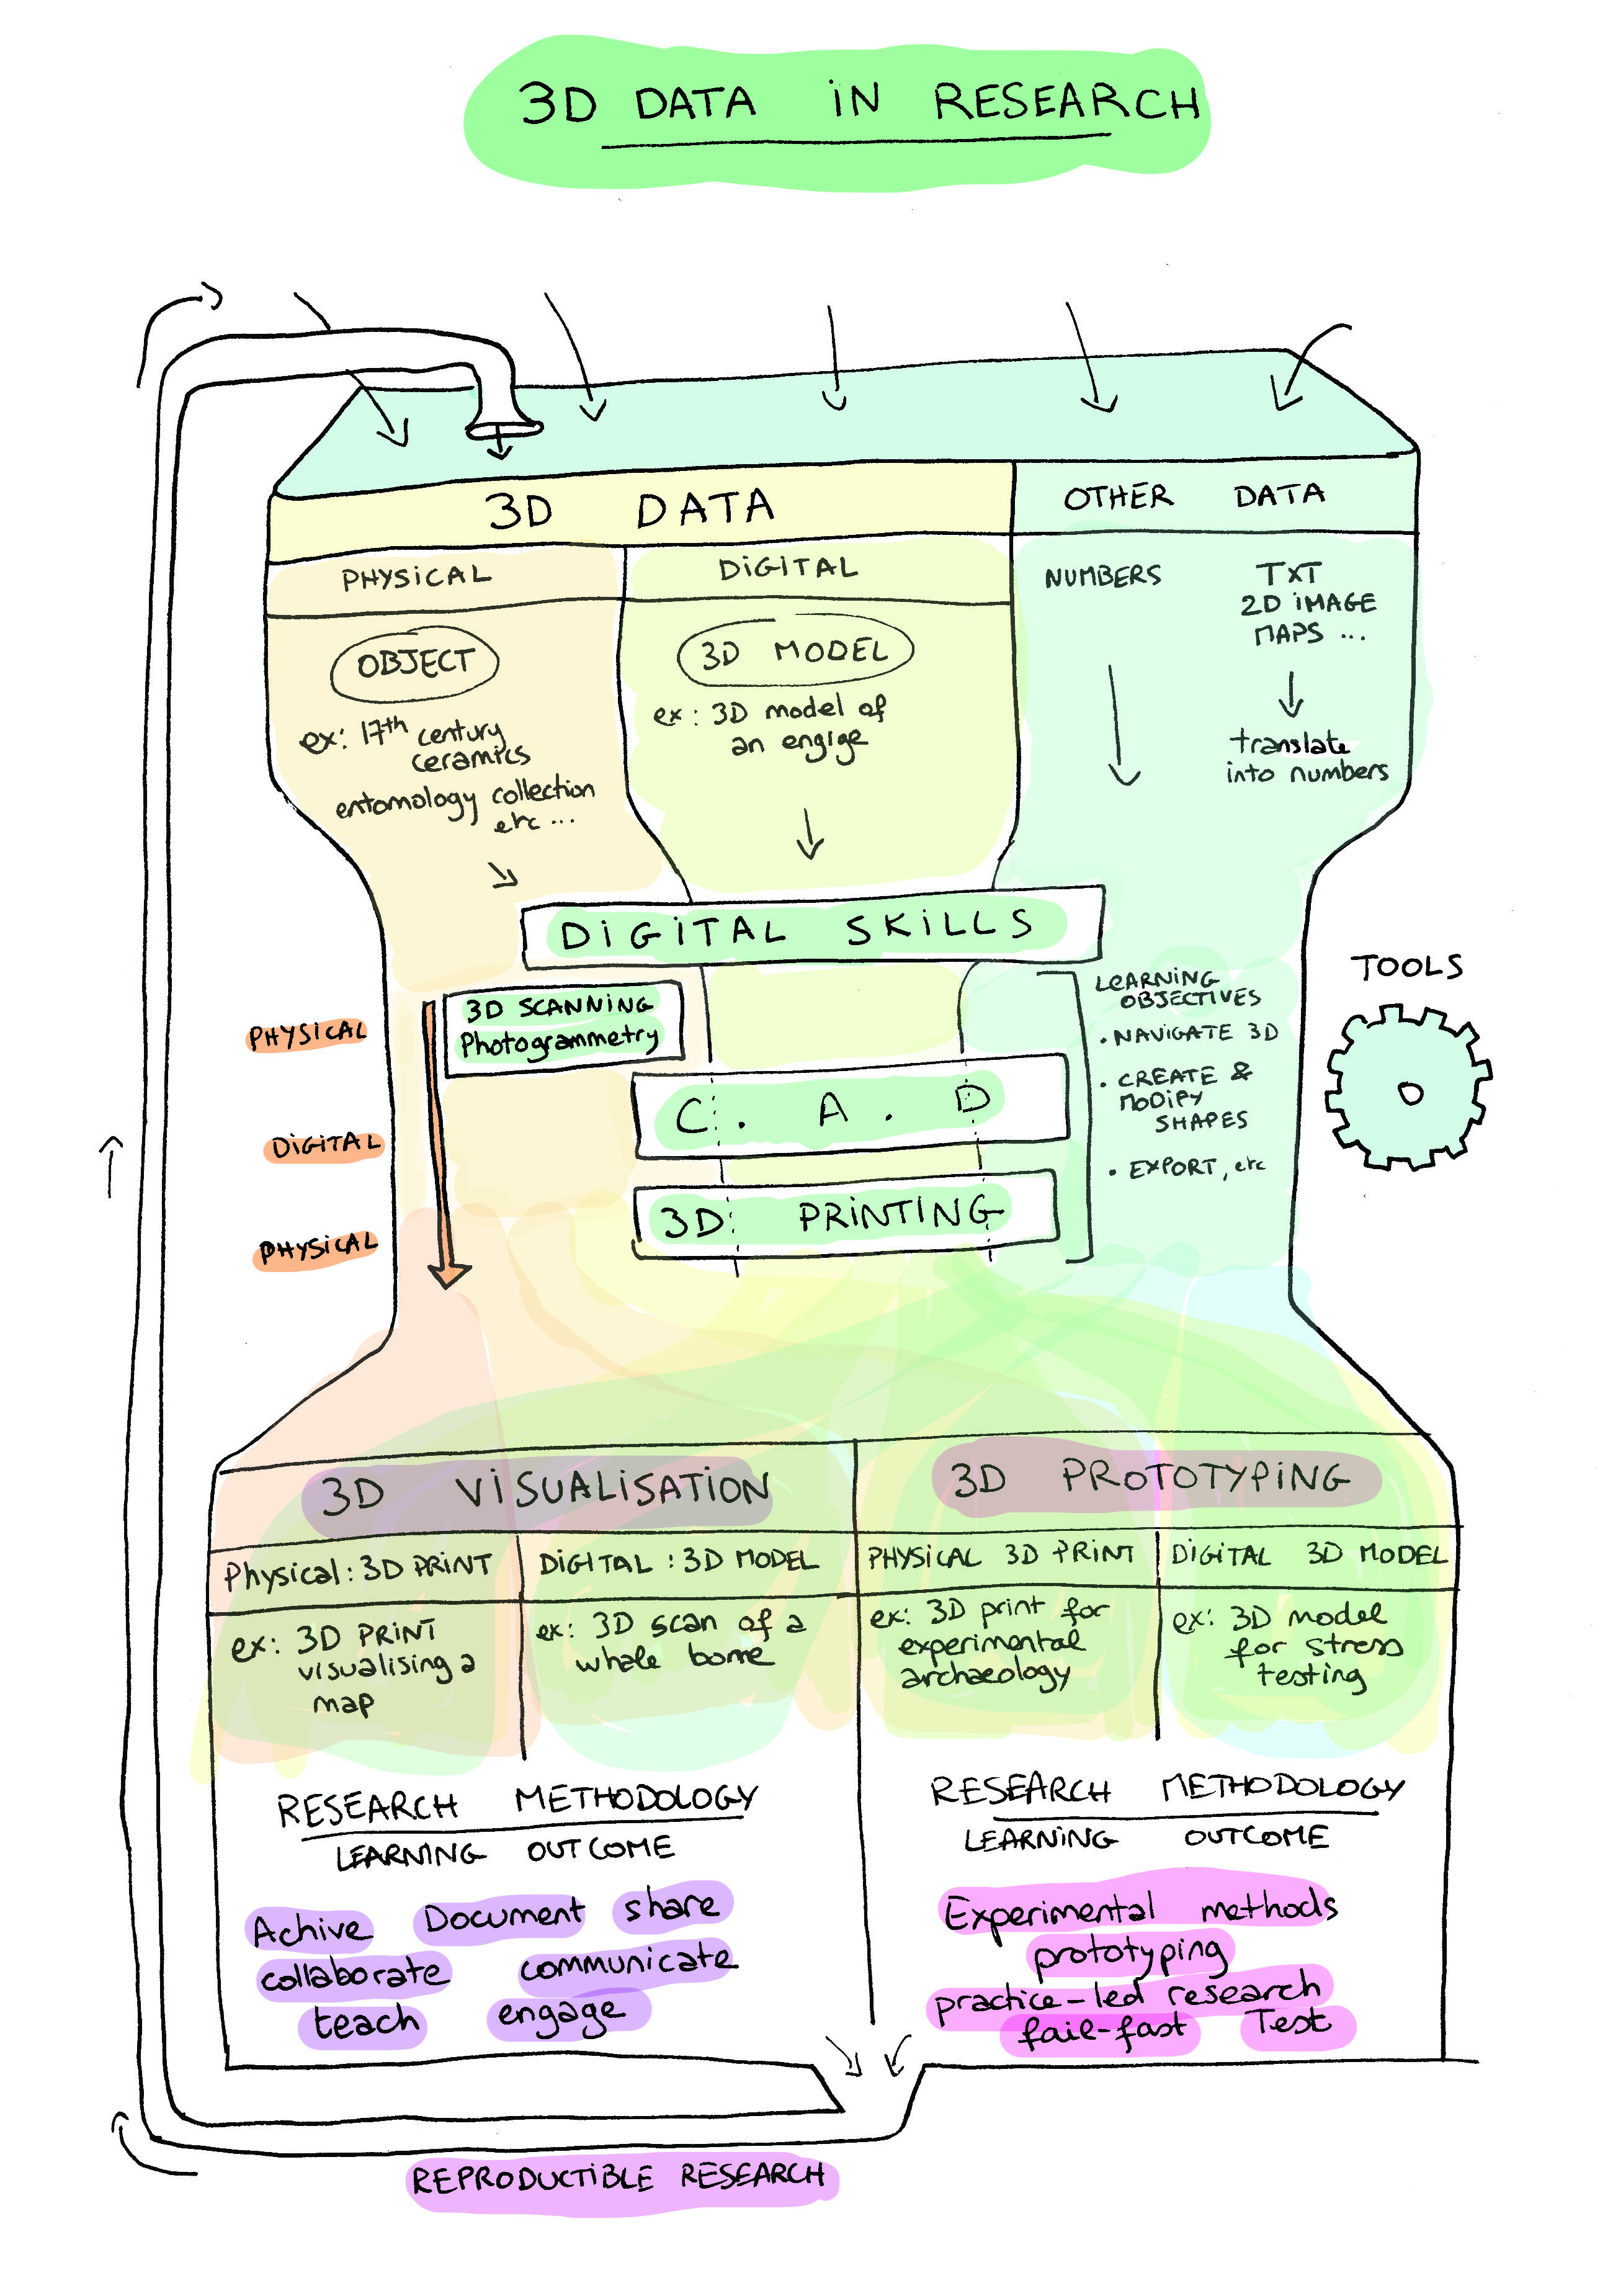 3D DATA IN RESEARCH
3D DATA
OTHER DATA
PHYSICAL
DIGITAL
NUMBERS
TXT
2D IMAGE
MAPS ...
OBJECT
3D MODEL
ex: 17th century
ceramics
entomology collection
etc ...
ex: 3D model of
an engige
translate
into numbers
DIGITAL SKILLS
3D SCANNING
Photogrammetry
PHYSICAL
DIGITAL
PHYSICAL
C. A. D
3D PRINTING
LEARNING
OBJECTIVES
• NAVIGATE 3D
• CREATE &
MODIFY
SHAPES
• EXPORT, etc
TOOLS
3D VISUALISATION
3D PROTOTYPING
Physical: 3D PRINT
DIGITAL: 3D MODEL
PHYSICAL 3D PRINT
DIGITAL 3D MODEL
ex: 3D PRINT
visualising a
map
ex: 3D scan of a
whale bone
ex: 3D print for
experimental
archaeology
ex: 3D model
for stress
testing
RESEARCH METHODOLOGY
LEARNING OUTCOME
Achive Document share
collaborate communicate
teach engage
RESEARCH METHODOLOGY
LEARNING OUTCOME
Experimental methods
prototyping
practice-led research
fail-fast Test
REPRODUCTIBLE RESEARCH